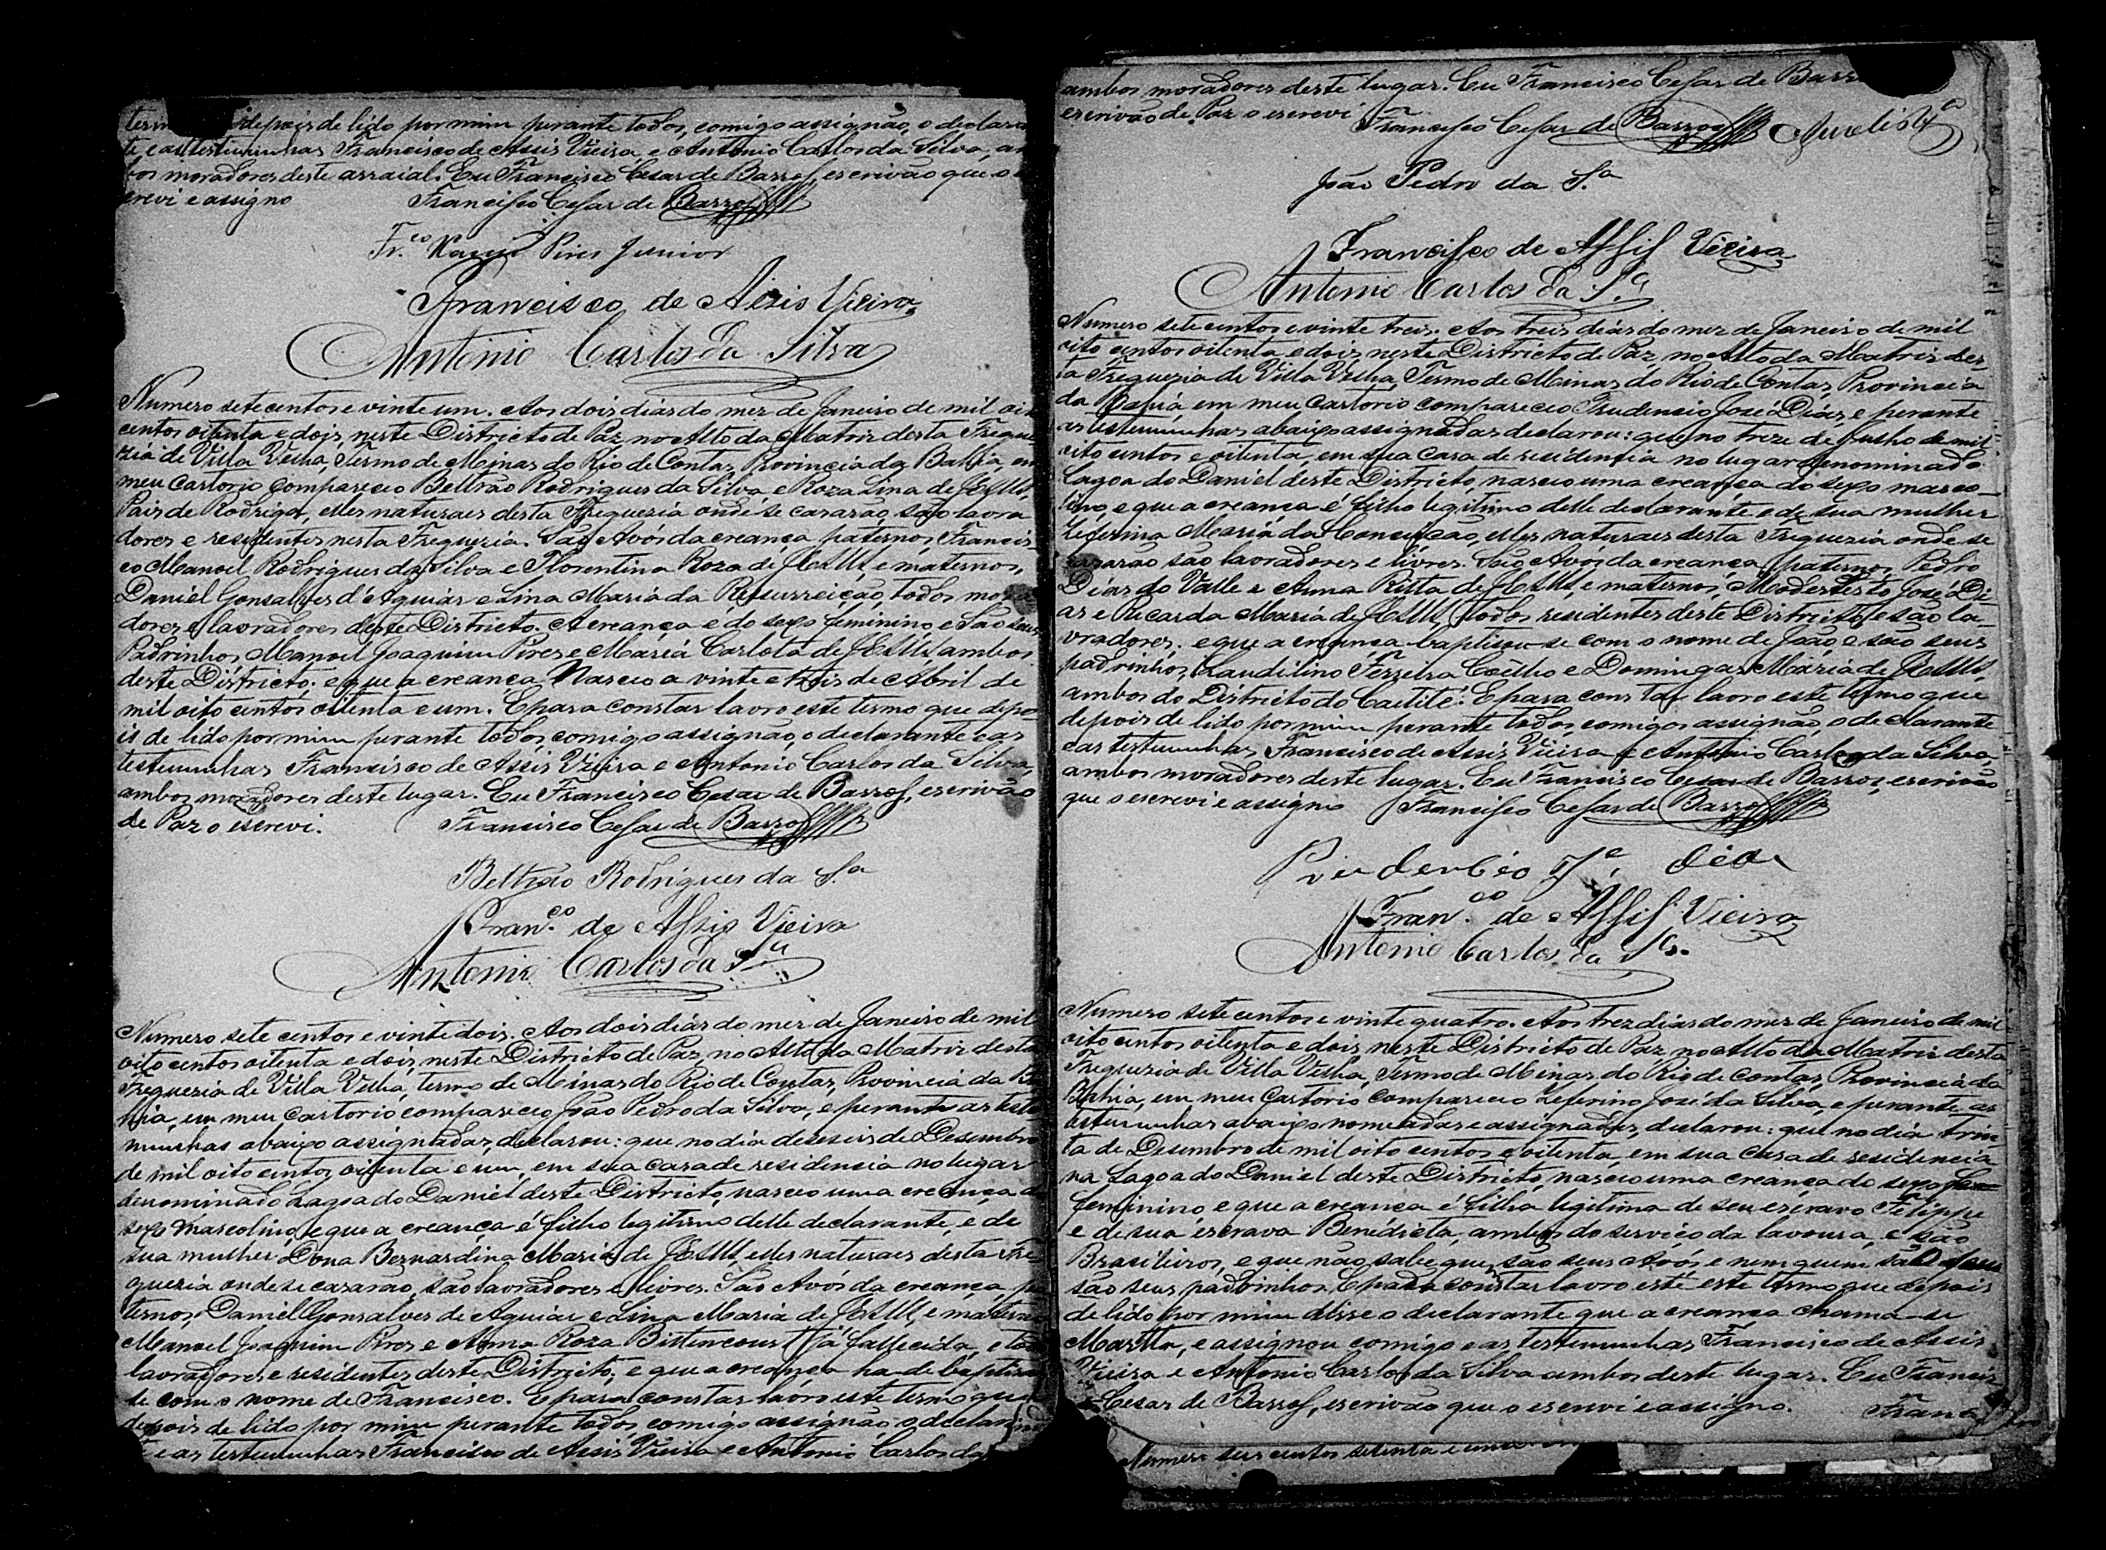 depois de lido por mim perante todos, comigo assignão, o declaran
te e as testemunhas Francisco de Assis Vieira, e Antonio Carlos da Silva, am
bos moradores deste arraial. Eu Francisco Cesar de Barros, escrivão que o es
crevi e assigno Francisco Cesar de Barros
Fr.co Xavier Pires Junior
Francisco de Assis Vieira
Antonio Carlos da Silva
Numero sete centos e vinte um. Aos dois dias do mez de Janeiro de mil oito
centos oitenta e dois, neste Districto de Paz, no Alto da Matriz desta Fregue
zia de Villa Velha, Termo de Minas do Rio de Contas, Provincia da Bahia, em
meu cartorio compareceo Beltrão Rodrigues da Silva, e Roza Lina de JESUS,
Pais de Rodriga, elles naturaes desta Freguezia onde se cazarão, são lavra
dores e residentes nesta Freguezia. São Avós da creança, paternos, Francis
co Manoel Rodrigues da Silva e Florentina Roza de JESUS, e maternos,
Daniel Gonsalves d'Aguiar e Lina Maria da Ressurreição, todos mora
dores e lavradores deste Districto. A creança e do sexo feminino e São seus
Padrinhos, Manoel Joaquim Pires e Maria Carlota de JESUS ambos
deste Districto. e que a creança Nasceo a vinte e treis de Abril de
mil oito centos oitenta e um. E para constar lavro este termo que depo
is de lido por mim perante todos, comigo assignão, o declarante e as
testemunhas Francisco de Assis Vieira e Antonio Carlos da Silva,
ambos moradores deste lugar. Eu Francisco Cesar de Barros, escrivão
de Paz o escrevi. Francisco Cesar de Barros
Beltrão Rodrigues da S.a
Fran.co de Assis Vieira
Antonio Carlos da S.a
Numero sete centos e vinte dois. Aos dois dias do mez de Janeiro de mil
oito centos oitenta e dois, neste Districto de Paz, no Alto da Matriz desta
Freguezia de Villa Velha, termo de Minas do Rio de Contas, Provincia da Ba
hia, em meu Cartorio compareceo João Pedro da Silva, e perante as teste
munhas abaixo assignadas, declarou: que no dia deseseis de Desembro
de mil oito centos, oitenta e um, em sua casa de residencia no lugar
denominado Lagoa do Daniel deste Districto, nasceo uma creança do
sexo mascolino, e que a creança é filho legitimo delle declarante, e de
sua mulher Dona Bernardina Maria de JESUS, elles naturaes desta Fre
guezia onde se cazarão, são lavradores e livres. São Avós da creança, pa
ternos, Daniel Gonsalves de Aguiar e Lina Maria de JESUS, e maternos
Manoel Joaquim Pires e Anna Roza Bittencourt (já fallecida, e todos
lavradores e residentes deste Districto, e que a creança ha de baptizar
se com o nome de Francisco. E para constar lavro este termo que
depois de lido por mim perante todos comigo assignão, o declaran
te e as testemunhas Francisco de Assis Vieira e Antonio Carlos da
ambos moradores deste lugar. Eu Francisco Cesar de Barros
escrivão de Paz o escrevi Francisco Cesar de Barros
João Pedro da S.a
Francisco de Assis Vieira
Antonio Carlos da S.a
Numero sete centos e vinte treis. Aos treis dias do mez de Janeiro de mil
oito centos oitenta e dois, neste Districto de Paz, no Alto da Matriz des
ta Freguezia de Villa Velha, Termo de Minas do Rio de Contas, Provincia
da Bahia em meu Cartorio compareceo Prudencio José Dias, e perante
as testemunhas abaixo assignadas declarou: que no treze de Junho de mil
oito centos e oitenta, em sua casa de residencia no lugar denominado
Lagoa do Daniel deste Districto, nasceo uma creança do sexo masco
lino, e que a creança é filho legitimo delle declarante, e de sua mulher
Zeferina Maria da Conceição, elles naturaes desta Freguezia onde se
cazarão são lavradores e livres. São Avós da creança, paternos, Pedro
Dias do Valle e Anna Ritta de JESUS, e maternos, Modesto José Di
as e Ricarda Maria de JESUS, todos residentes deste Districto, e são la
vradores. e que a creança baptisou-se com o nome de João, e são seus
padrinhos, Laudilino Ferreira Coêlho e Domingas Maria de JESUS,
ambos do Districto do Caitité. E para constar lavro este termo que
depois de lido por mim perante todos, comigo assignão, o declarante
e as testemunhas Francisco de Assis Vieira e Antonio Carlos da Silva,
ambos moradores deste lugar. Eu Francisco Cesar de Barros, escrivão
que o escrevi e assigno Francisco Cesar de Barros
Prudencio J.e Dias
Fran.co de Assis Vieira
Antonio Carlos da S.a
Numero sete centos e vinte quatro. Aos trez dias do mez de Janeiro de mil
oito centos oitenta e dois, neste Districto de Paz, no Alto da Matriz desta
Freguezia de Villa Velha, Termo de Minas do Rio de Contas, Provincia da
Bahia, em meu Cartorio compareceo Zeferino José da Silva, e perante as
testemunhas abaixo nomeadas e assignadas, declarou: que no dia trin
ta de Desembro de mil oito centos e oitenta, em sua casa de residencia
na Lagoa do Daniel deste Districto, nasceo uma creança do sexo
feminino e que a creança é filha legitima de seu escravo Felippe
e de sua escrava Benedicta, ambos do serviço da lavoura, e são
Brasileiros, e que não sabe quem são seus Avós, e nem quem
são seus padrinhos. E para constar lavro este este termo que depois
de lido por mim disse o declarante que a creança chama-se
Martha, e assignou comigo e as testemunhas Francisco de Assis
Vieira e Antonio Carlos da Silva ambos deste lugar. Eu Francis
co Cesar de Barros, escrivão que o escrevi e assigno. Franc
Numero seis centos setenta e